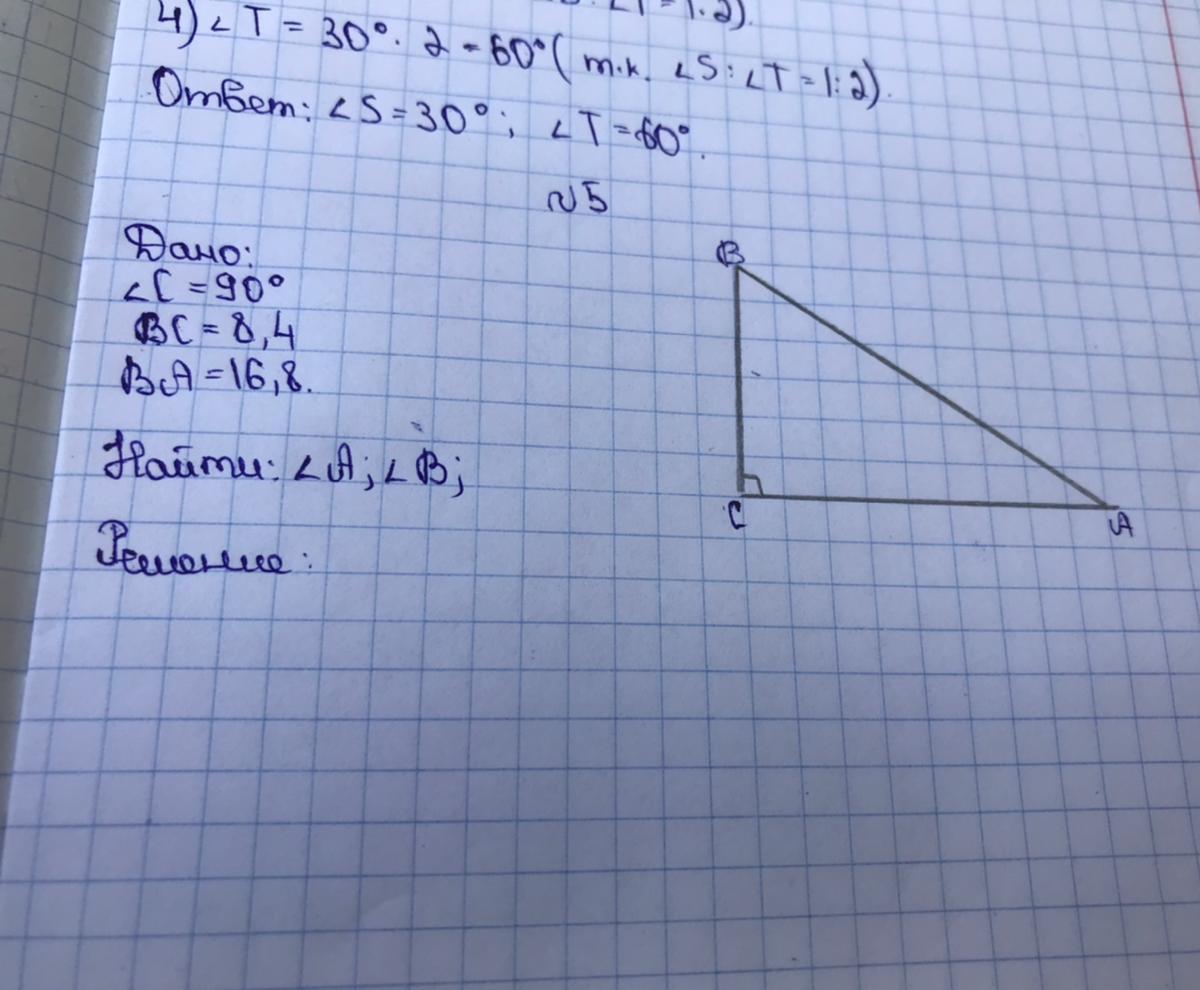 ∠T = 1:2).
4) ∠T = 30°. 2 = 60° ( т.к. ∠S : ∠T = 1:2).
Ответ: ∠S = 30°; ∠T = 60°.
№5
Дано:
∠C = 90°
BC = 8,4
BA = 16,8.
Найти: ∠A; ∠B;
Решение:
B
C
A